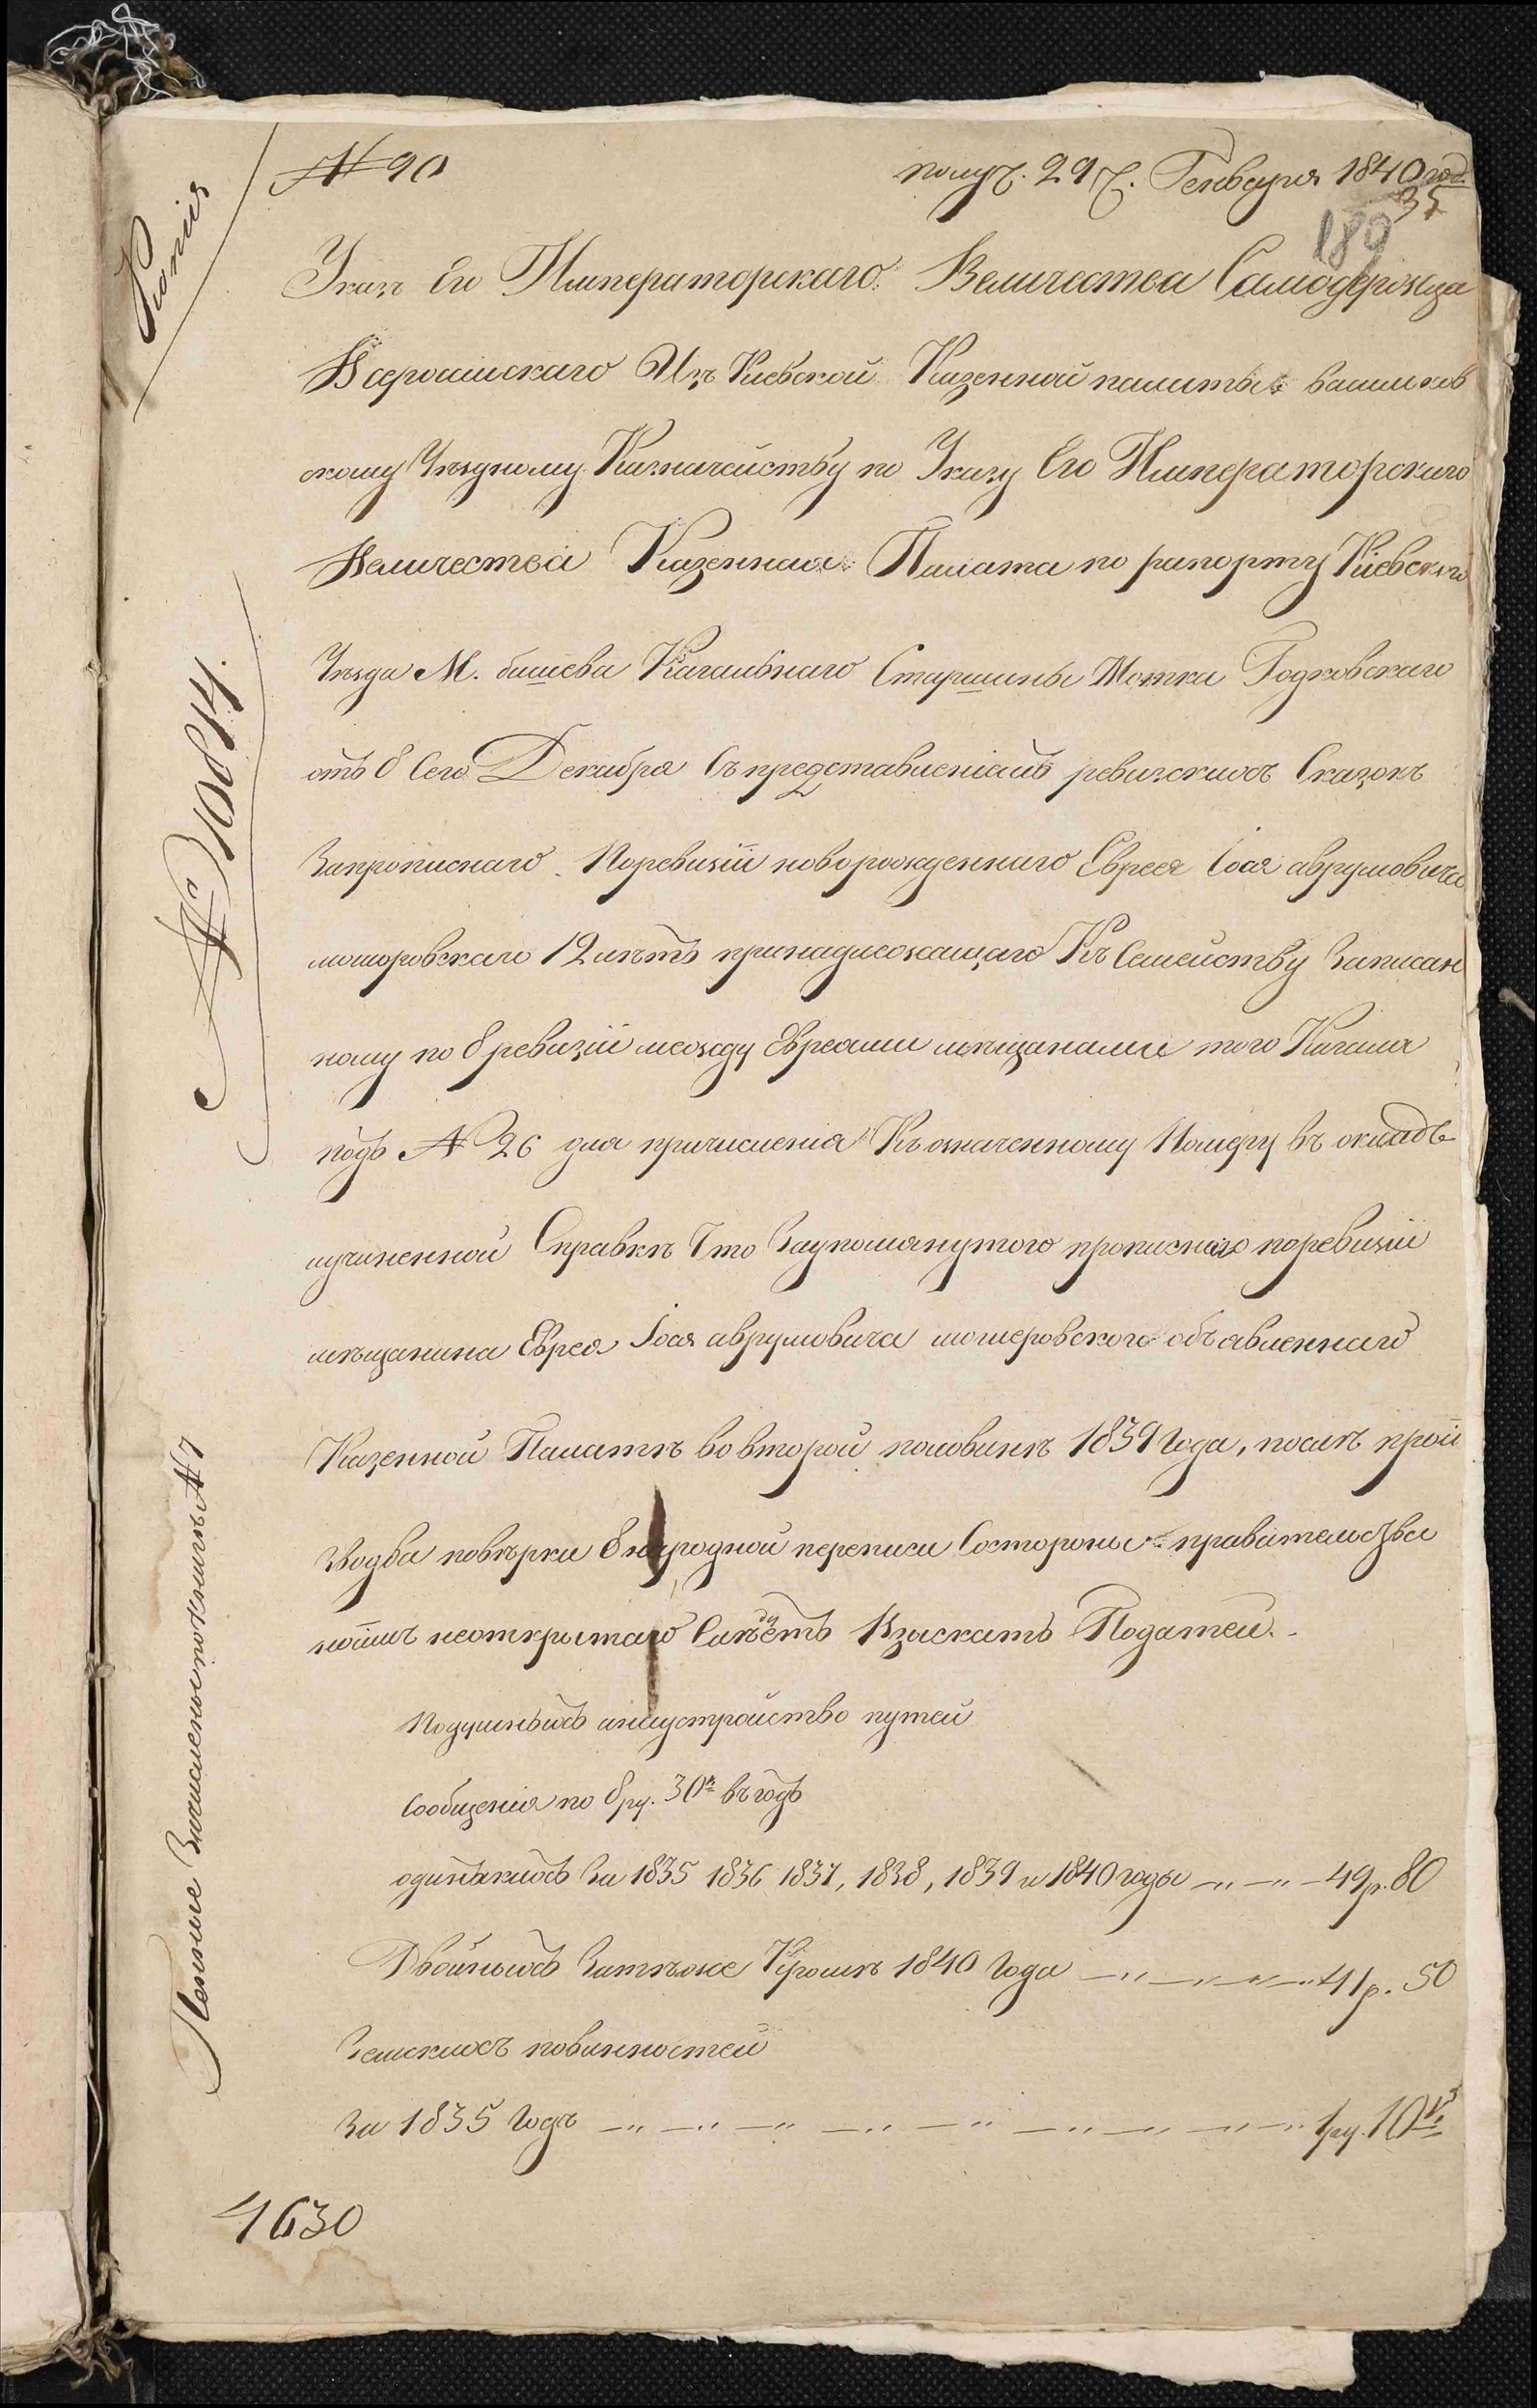 № 90
получ. 29 Генваря 1840 год.
35
189
Копія
Указъ Его Императорскаго Величества Самодержца
Всеросійскаго Изъ Киевской Казенной палаты васильков
скому Уѣздному Казначейству по Указу Его Императорскаго
Величества Казенная Палата по рапорту Кіевскаго
Уѣзда М. бышева Кагальнаго Старшины Мотки Годковскаго
отъ 8 Сего Декабря Съ представленіемъ ревизскихъ Сказокъ
Запрописнаго Поревизіи новорожденнаго Еврея Іося аврумовича
моторовскаго 12 лѣтъ принадлежащаго Къ Семейству Записан
ному по 8 ревизіи между Евреями мѣщанами того Кагала
подъ № 26 для причисленія Къ означенному Номеру въ окладъ
учиненной Справкѣ Что Заупомянутого прописнаго поревизіи
мѣщанина Еврея Іося аврумовича мошеровского объявленнаго
Казенной Палатѣ во второй половинѣ 1839 Года, послѣ прои
зводва повѣрки 8 народной переписи Состороны правительства
неоткрытаго Слѣдуетъ Взыскать Податей.
Подушныхъ инаустройство путей
Сообщенія по 8 ру. 30к въ годъ
одинакихъ За 1835 1836 1837, 1838, 1839 и 1840 годы 49 р. 80
Двойныхъ Затѣже Кромѣ 1840 Года 41 р. 50
Земскихъ повинностей
За 1835 Годъ 1 ру. 10
№ 10814.
4630